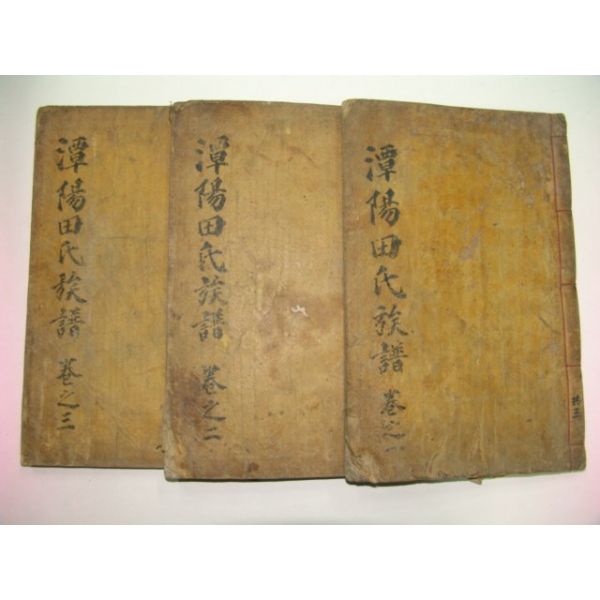 潭陽田氏族譜 卷之一
共三
潭陽田氏族譜 卷之二
潭陽田氏族譜 卷之三